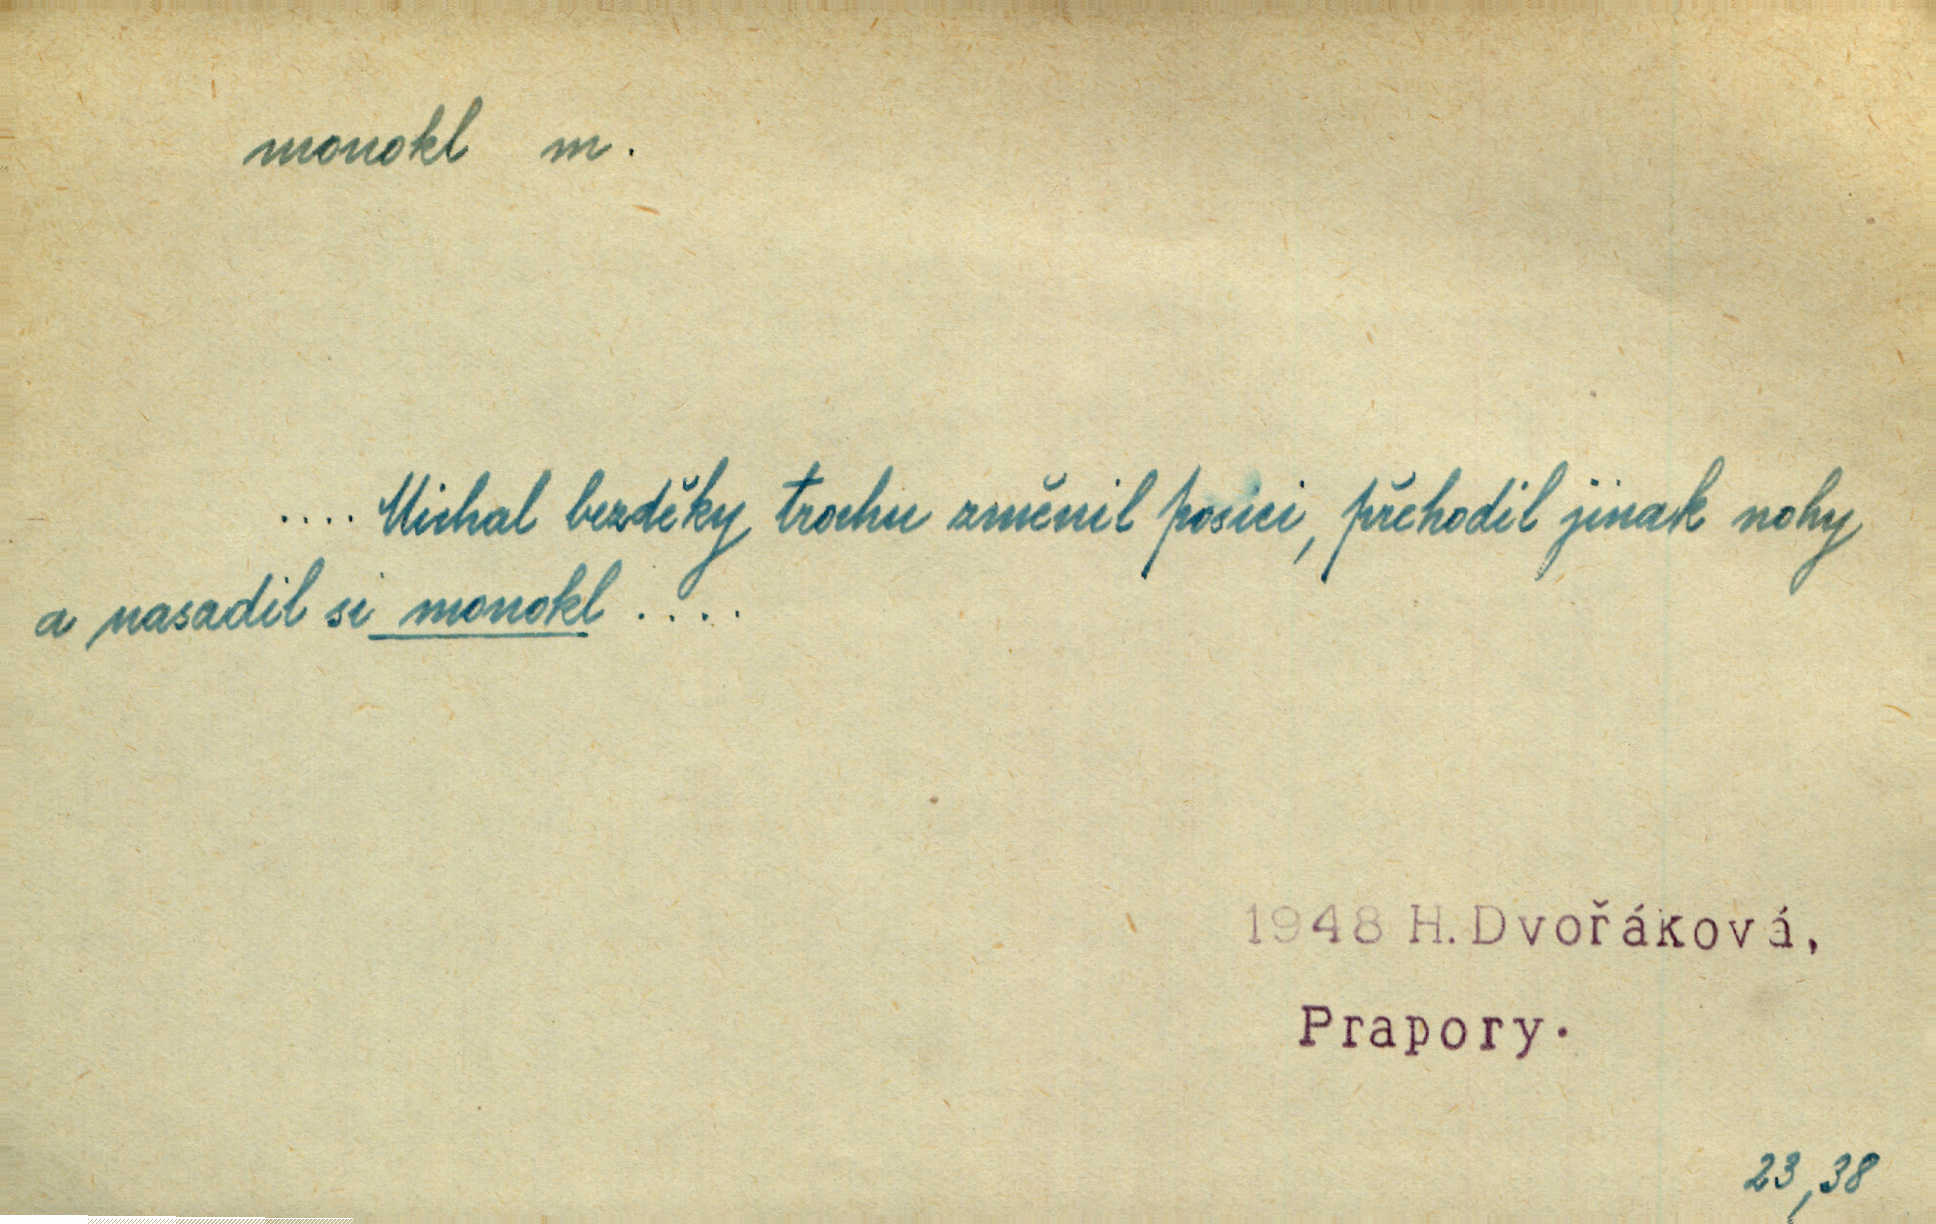 monokl m.
.... Michal bezděky trochu změnil posici, přehodil jinak nohy
a nasadil si monokl ....
1948 H. Dvořáková,
Prapory.
23,38